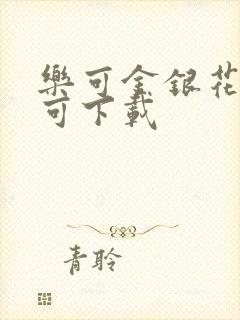 樂可金銀花
可下載
青聆